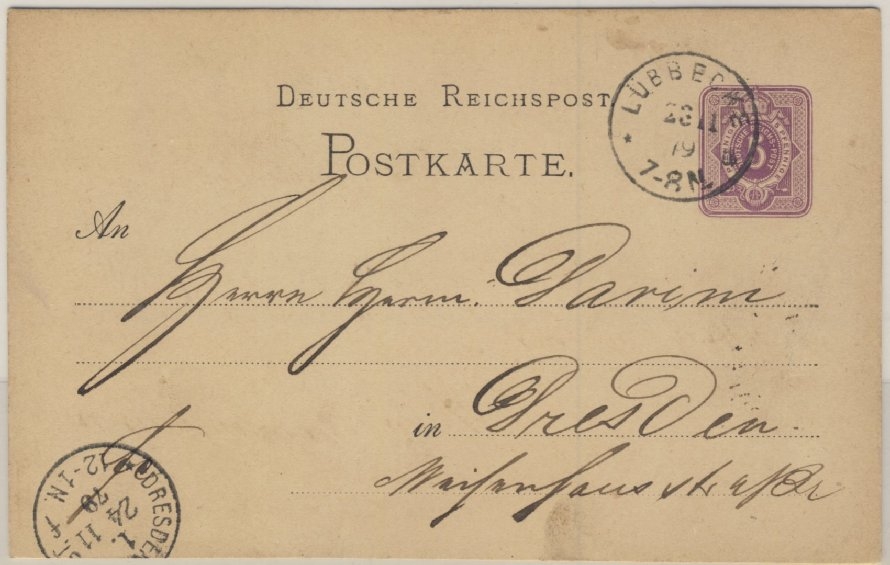 DEUTSCHE REICHSPOST.
POSTKARTE.
LÜBBECKE
23 11
79
7-8 N.
5
An
Herrn Herm. Darimi
in Dresden.
Waisenhausstraße
DRESDEN
1.
24 11
79
12-1N.